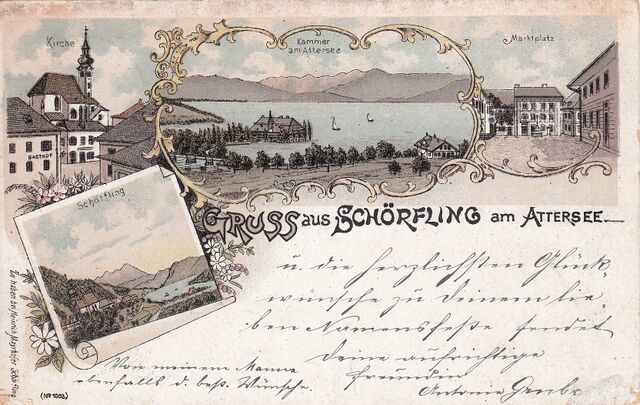 Kirche
Kammer
am Attersee
Marktplatz
GASTHOF
Schörfling
GRUSS aus SCHÖRFLING am ATTERSEE.
u. die herzlichsten Glück-
wünsche zu Deinem lie-
ben Namensfeste sendet
Deine aufrichtige
Freundin
Antonie
Von meinem Manne
ebenfalls d. best. Wünsche.
Zu haben bei Heinrich Schörfling
(No 1003)